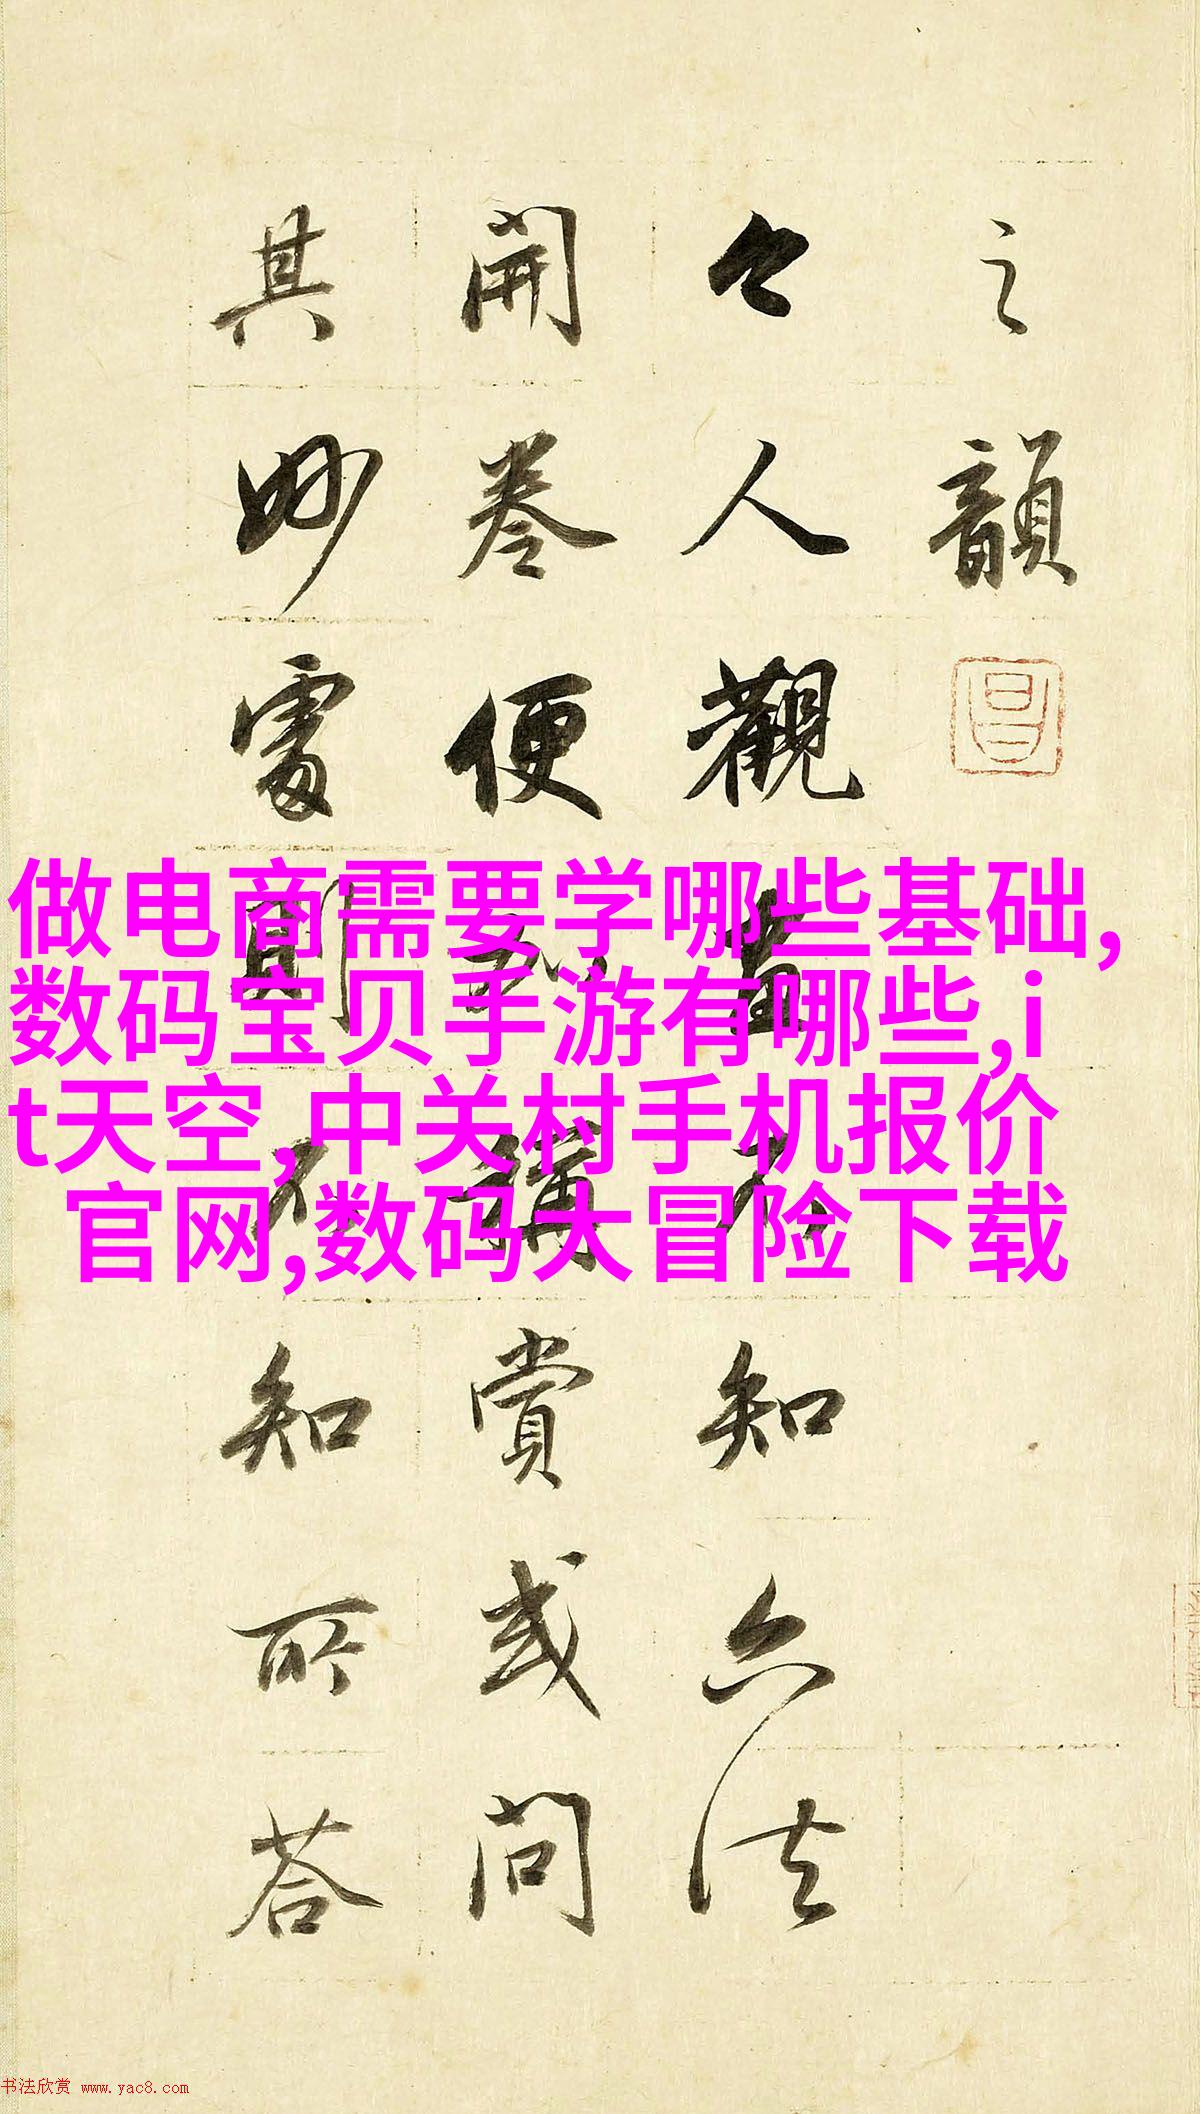 之韻
今人觀畫不知六法
開卷便加稱賞或問
其妙處則不知所答
昌
做电商需要学哪些基础,
数码宝贝手游有哪些,i
t天空,中关村手机报价
官网,数码大冒险下载
书法欣赏 www.yac8.com